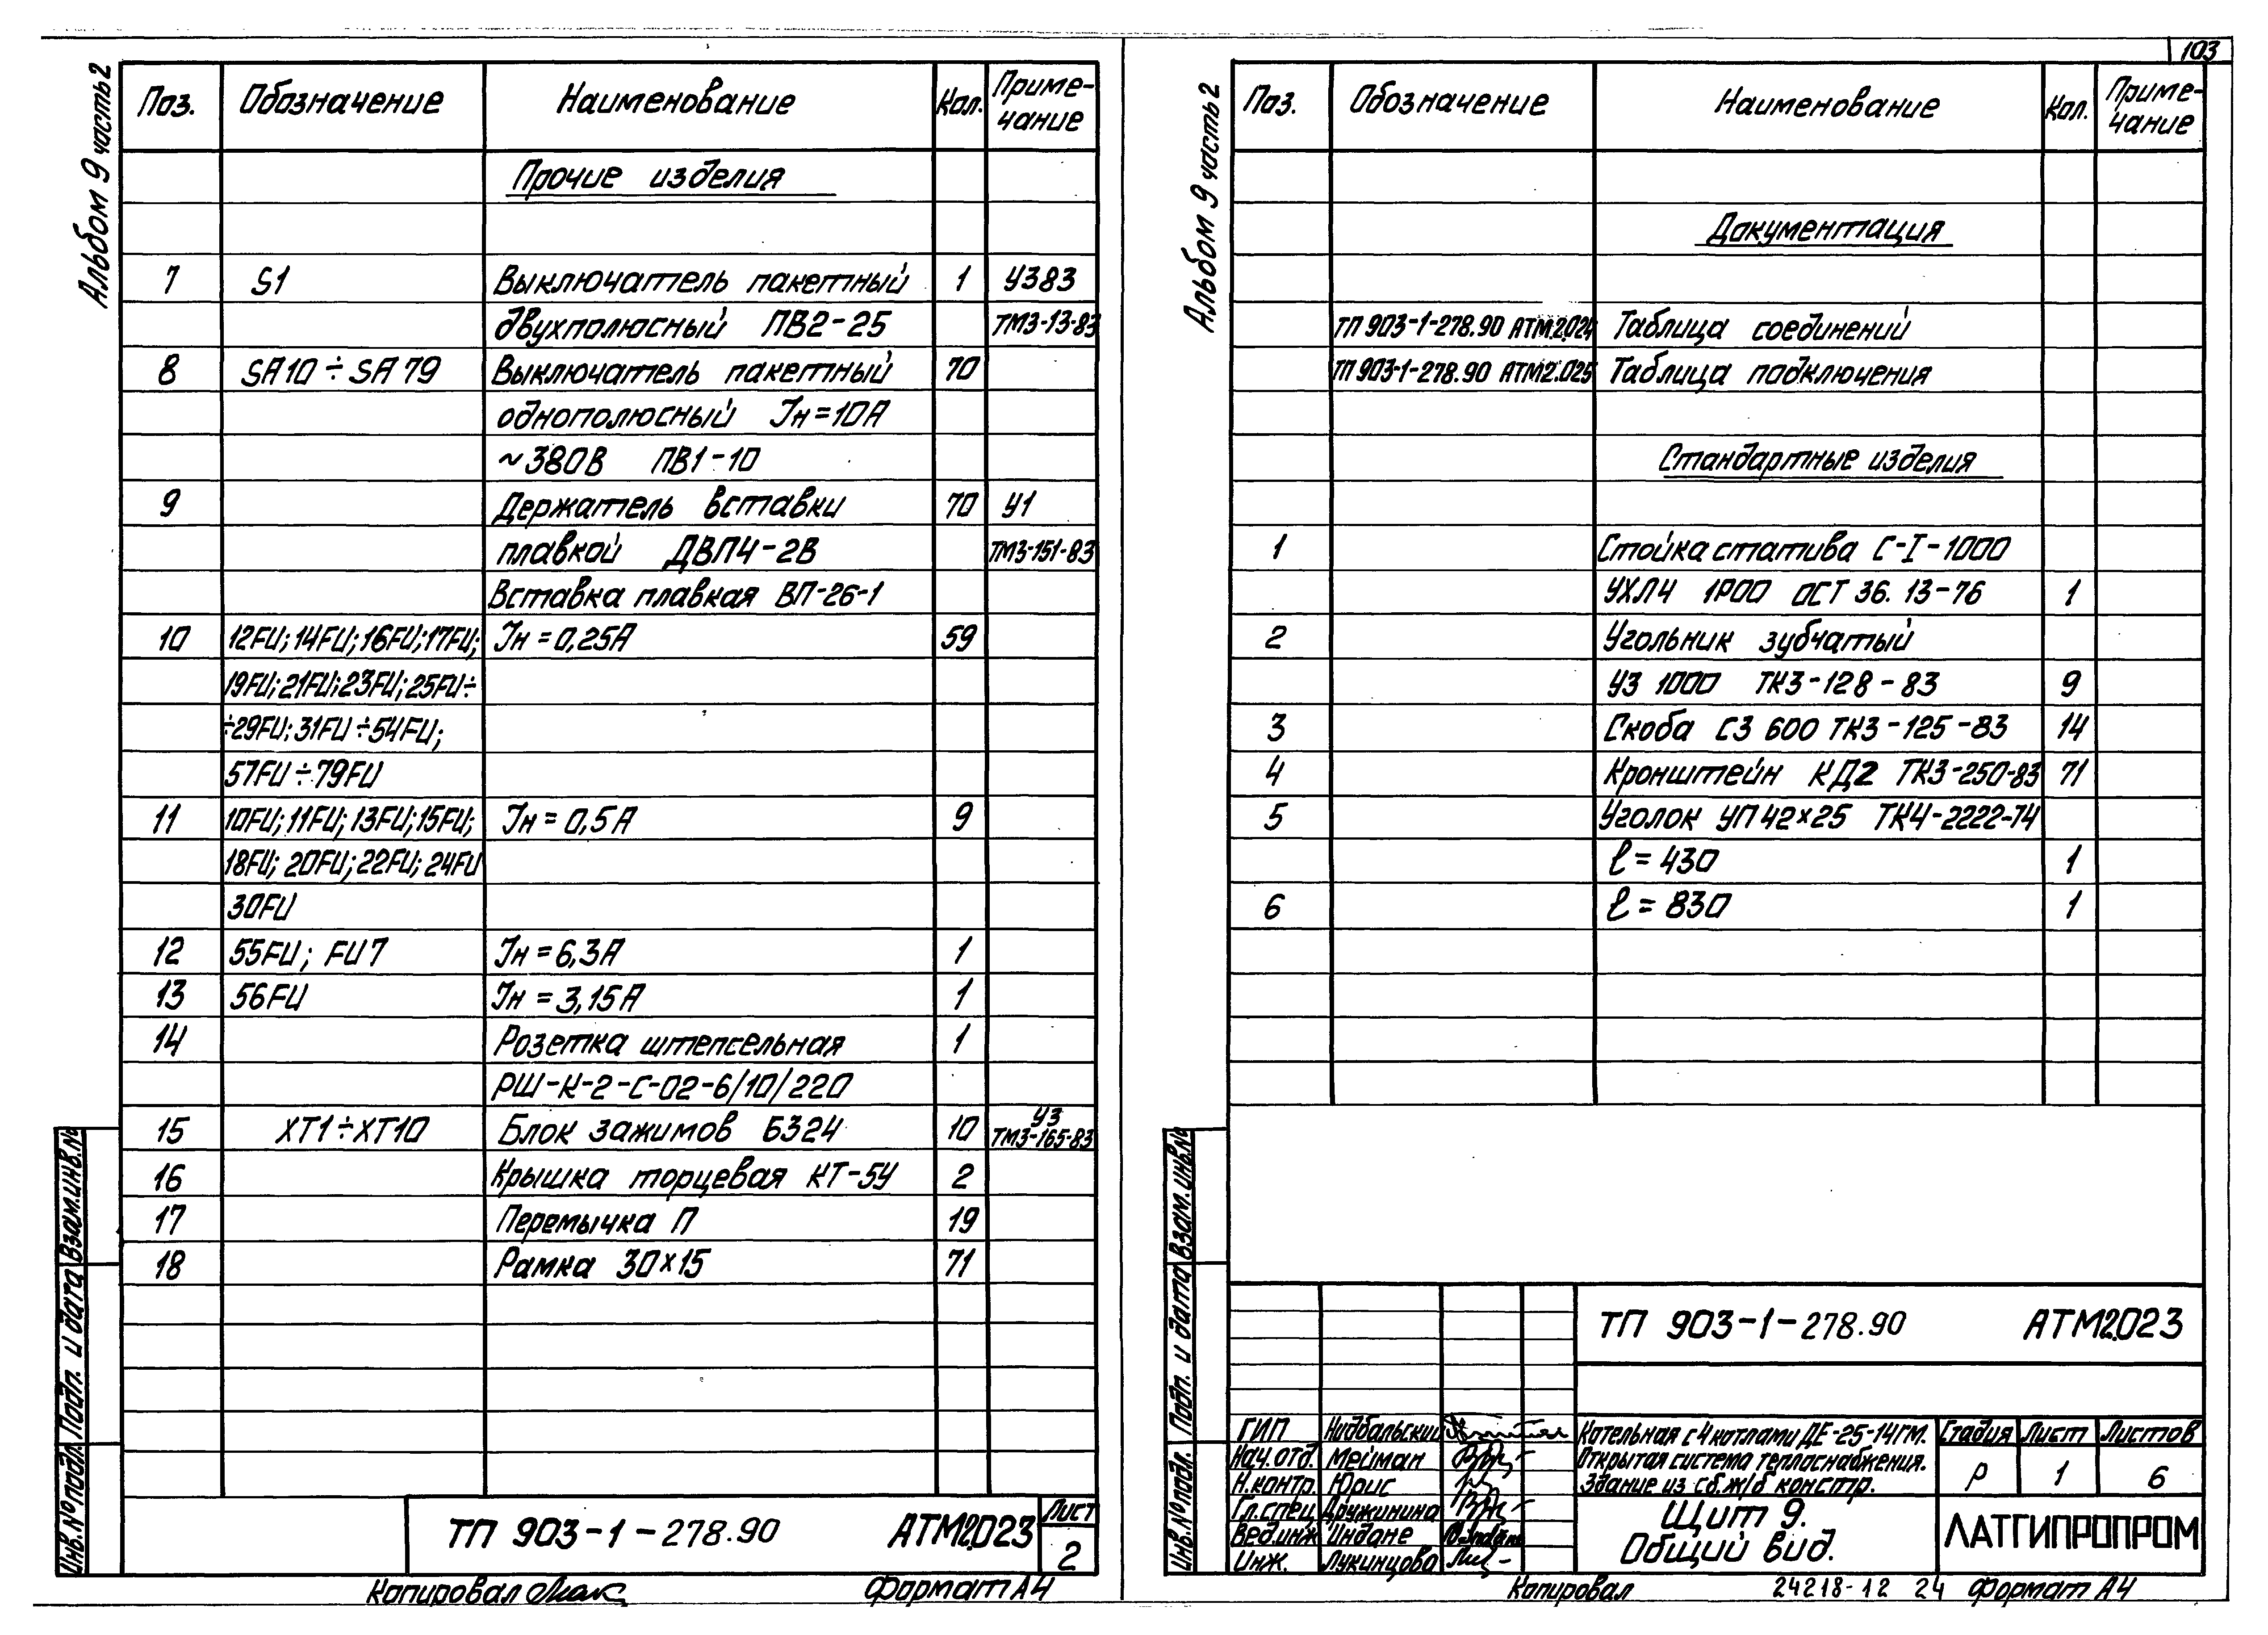 103
Альбом 9 часть 2
Поз. Обозначение Наименование Кол. Приме-
чание
Прочие изделия
7 S1 Выключатель пакетный 1 У383
двухполюсный ПВ2-25 ТМ3-13-83
8 SA10÷SA79 Выключатель пакетный 70
однополюсный Iн=10А
~380В ПВ1-10
9 Держатель вставки 70 У1
плавкой ДВП4-2В ТМ3-151-83
Вставка плавкая ВП-26-1
10 12FU; 14FU; 16FU; 17FU; Iн=0,25А 59
19FU; 21FU; 23FU; 25FU÷
÷29FU; 31FU÷54FU;
57FU÷79FU
11 10FU; 11FU; 13FU; 15FU; Iн=0,5А 9
18FU; 20FU; 22FU; 24FU
30FU
12 55FU; FU7 Iн=6,3А 1
13 56FU Iн=3,15А 1
14 Розетка штепсельная 1
РШ-К-2-С-02-6/10/220
15 XT1÷XT10 Блок зажимов Б324 10 У3
ТМ3-165-83
16 Крышка торцевая КТ-5У 2
17 Перемычка П 19
18 Рамка 30×15 71
Взам.инв.№
Подп. и дата
Инв.№подл.
ТП 903-1-278.90 АТМ2.023 Лист
2
Копировал Формат А4
Альбом 9 часть 2
Поз. Обозначение Наименование Кол. Приме-
чание
Документация
ТП 903-1-278.90 АТМ2.024 Таблица соединений
ТП 903-1-278.90 АТМ2.025 Таблица подключения
Стандартные изделия
1 Стойка статива С-I-1000
УХЛ4 1Р00 ОСТ 36.13-76 1
2 Угольник зубчатый
УЗ 1000 ТК3-128-83 9
3 Скоба СЗ 600 ТК3-125-83 14
4 Кронштейн КД2 ТК3-250-83 71
5 Уголок УП42×25 ТК4-2222-74
ℓ=430 1
6 ℓ=830 1
Взам.инв.№
Подп. и дата
Инв.№подл.
ТП 903-1-278.90 АТМ2.023
ГИП Нидбальский
Нач.отд. Мейман
Н.контр. Юрис
Гл.спец. Дружинина
Вед.инж. Индане
Инж. Лукинцова
Котельная с 4 котлами ДЕ-25-14ГМ.
Открытая система теплоснабжения.
Здание из сб.ж/б констр.
Стадия Лист Листов
Р 1 6
Щит 9.
Общий вид.
ЛАТГИПРОПРОМ
Копировал 24218-12 24 Формат А4